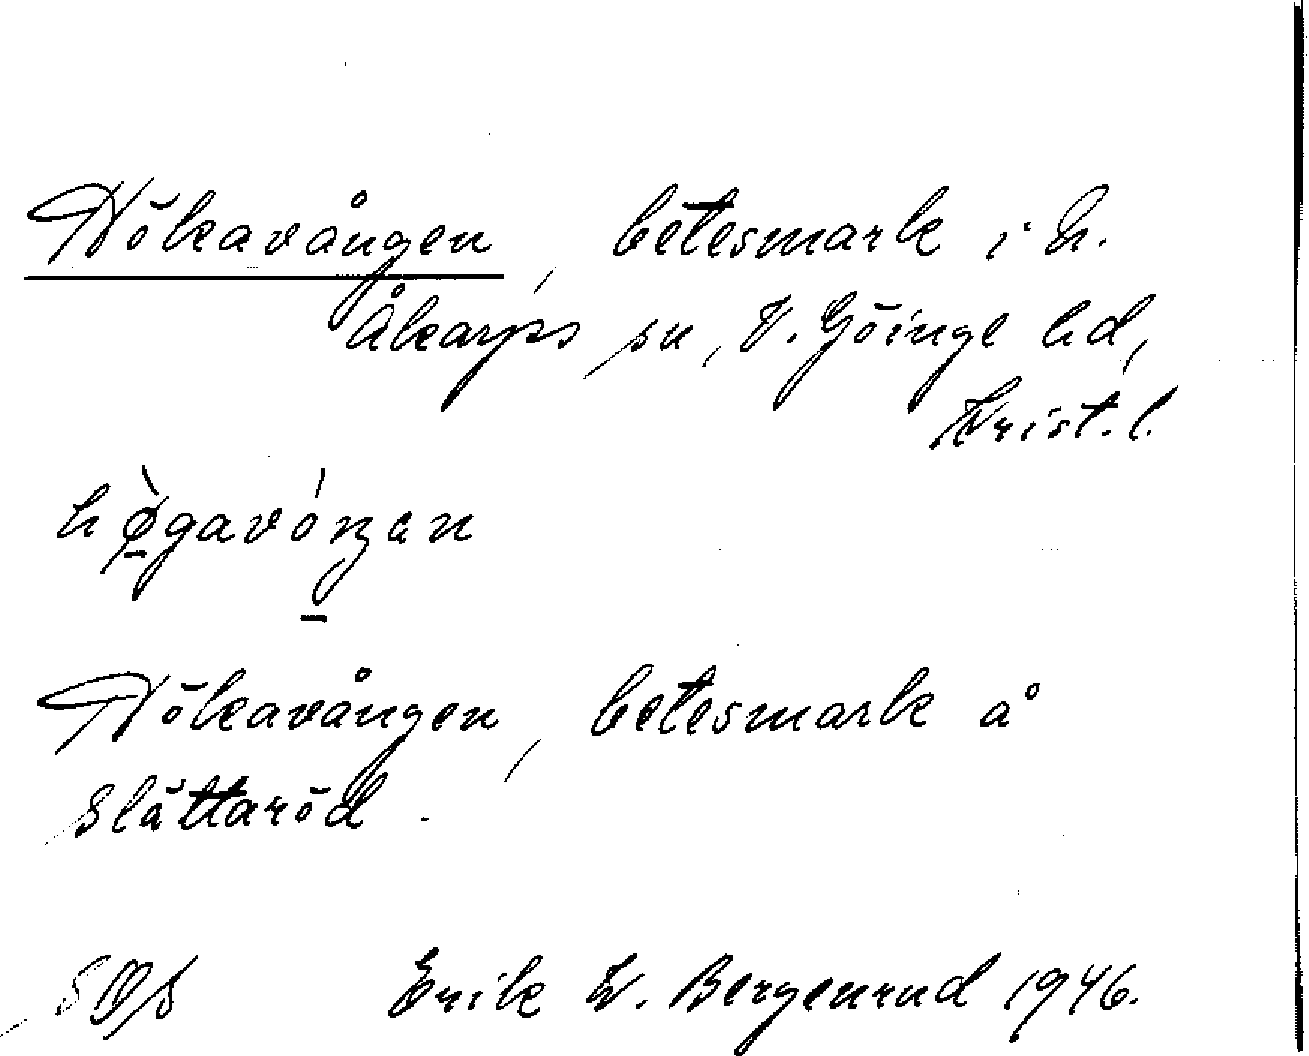 Hökavången, betesmark i N.
Åkarps sn, V. Göinge hd,
Krist. l.
hø̀gavóŋən
Hökavången, betesmark å
Slättaröd.
Erik W. Bergenrud 1946.